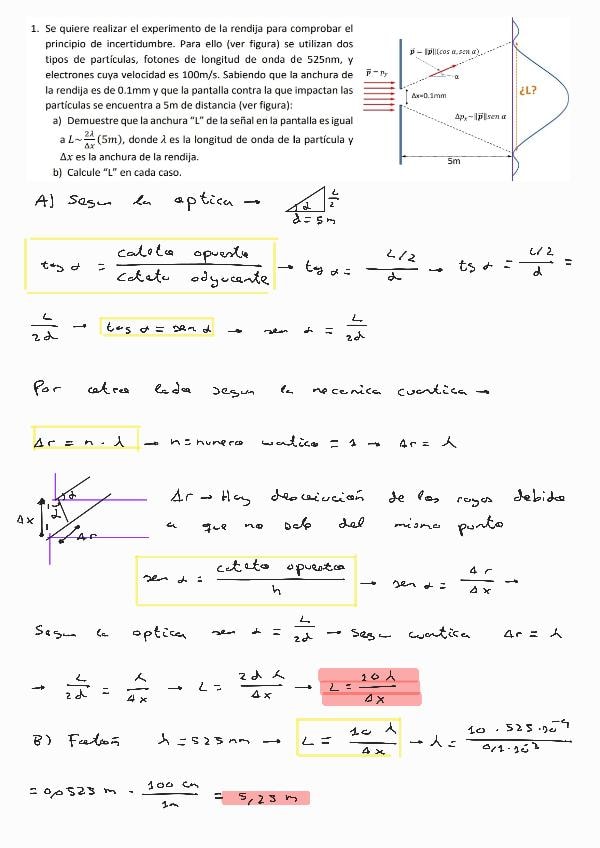 1. Se quiere realizar el experimento de la rendija para comprobar el
principio de incertidumbre. Para ello (ver figura) se utilizan dos
tipos de partículas, fotones de longitud de onda de 525nm, y
electrones cuya velocidad es 100m/s. Sabiendo que la anchura de
la rendija es de 0.1mm y que la pantalla contra la que impactan las
partículas se encuentra a 5m de distancia (ver figura):
a) Demuestre que la anchura "L" de la señal en la pantalla es igual
a L~2λ/Δx (5m), donde λ es la longitud de onda de la partícula y
Δx es la anchura de la rendija.
b) Calcule "L" en cada caso.
p⃗ = ‖p⃗‖(cos α, sen α)
p⃗ ~ p_y
α
Δx=0.1mm
¿L?
Δp_x~‖p⃗‖sen α
5m
A) Segun la optica → α L/2
d = 5m
tag α = cateto opuesto / cateto adyacente → tag α = L/2 / d → tg α = L/2 / d =
L/2d → tag α = sen α → sen α = L/2d
Por otro lado segun la mecanica cuantica →
Δr = n · λ → n = numero cuatico = 1 → Δr = λ
Δx α α Δr
Δr → Hay desviación de los rayos debido
a que no salo del mismo punto
sen α = cateto opuesto / h → sen α = Δr / Δx →
Segun la optica sen α = L/2d → Segun cuantica Δr = λ
→ L/2d = λ/Δx → L = 2dλ/Δx → L = 10λ/Δx
B) Fotón λ = 525nm → L = 10λ/Δx → λ = 10 · 525 · 10⁻⁹ / 0,1 · 10⁻³
= 0,0523 m · 100 cm / 1m = 5,23 m